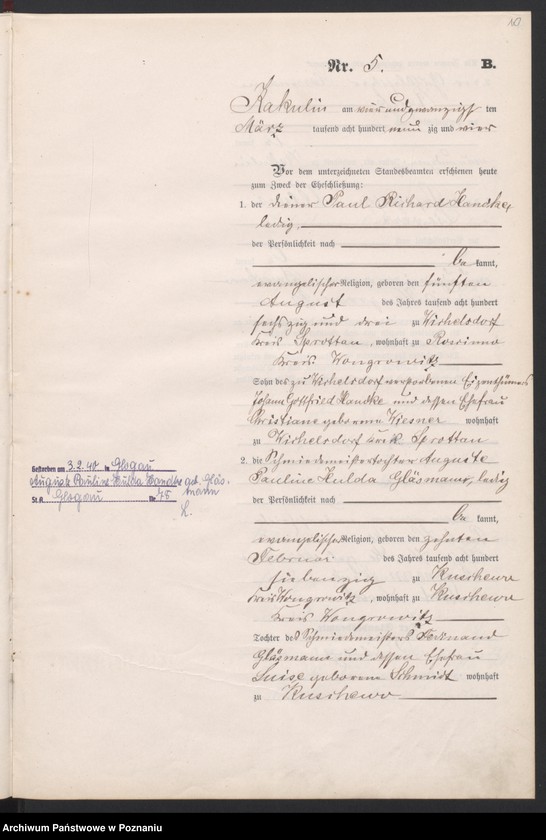 10
Nr. 5. B.
Kakulin am vier und zwanzigsten
März tausend acht hundert neun zig und vier
Vor dem unterzeichneten Standesbeamten erschienen heute
zum Zweck der Eheschließung:
1. der Diener Paul Richard Handke,
ledig,
der Persönlichkeit nach
be kannt,
evangelischer Religion, geboren den fünften
August des Jahres tausend acht hundert
sechszig und drei zu Wichelsdorf
Kreis Sprottau, wohnhaft zu Rowinno
Kreis Wongrowitz
Sohn des zu Wichelsdorf verstorbenen Eigenthümers
Johann Gottfried Handke und dessen Ehefrau
Christiane geborenen Wiesner wohnhaft
zu Wichelsdorf Kreis Sprottau
2. die Schmiedemeistertochter Auguste
Pauline Hulda Gläsmann, ledig
der Persönlichkeit nach
be kannt,
evangelischer Religion, geboren den zehnten
Februar des Jahres tausend acht hundert
siebenzig zu Kuschewo
Kreis Wongrowitz, wohnhaft zu Kuschewo
Kreis Wongrowitz
Tochter des Schmiedemeisters
Gläsmann und dessen Ehefrau
Luise geborenen Schmidt wohnhaft
zu Kuschewo
Gestorben am 3.2.40 in Glogau
Auguste Pauline Hulda Handke geb. Gläs-
mann
St. A. Glogau Nr. 75
Archiwum Państwowe w Poznaniu